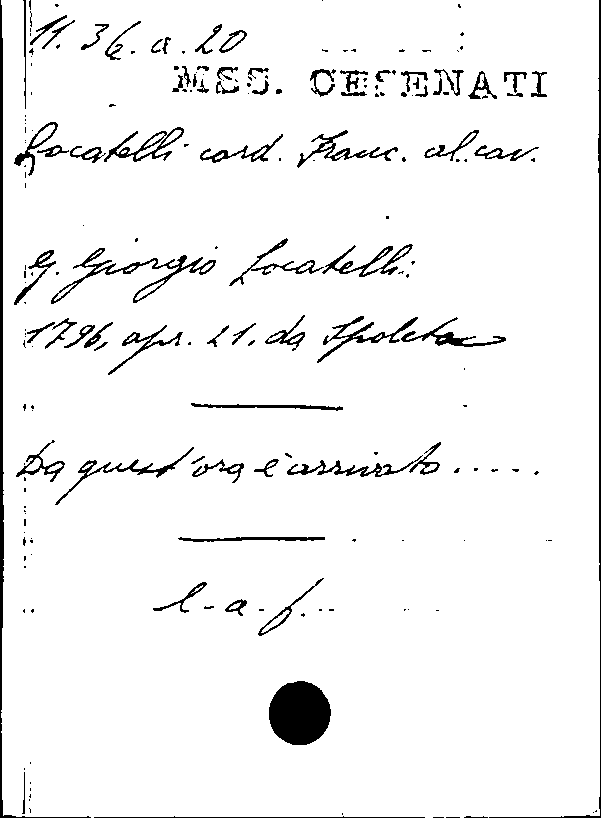 11. 36. a. 20
MSS. CESENATI
Locatelli card. Franc. al cav.
G. Giorgio Locatelli:
1796, apr. 21. da Spoleto
Da quest'ora è arrivato .....
l-a-f...